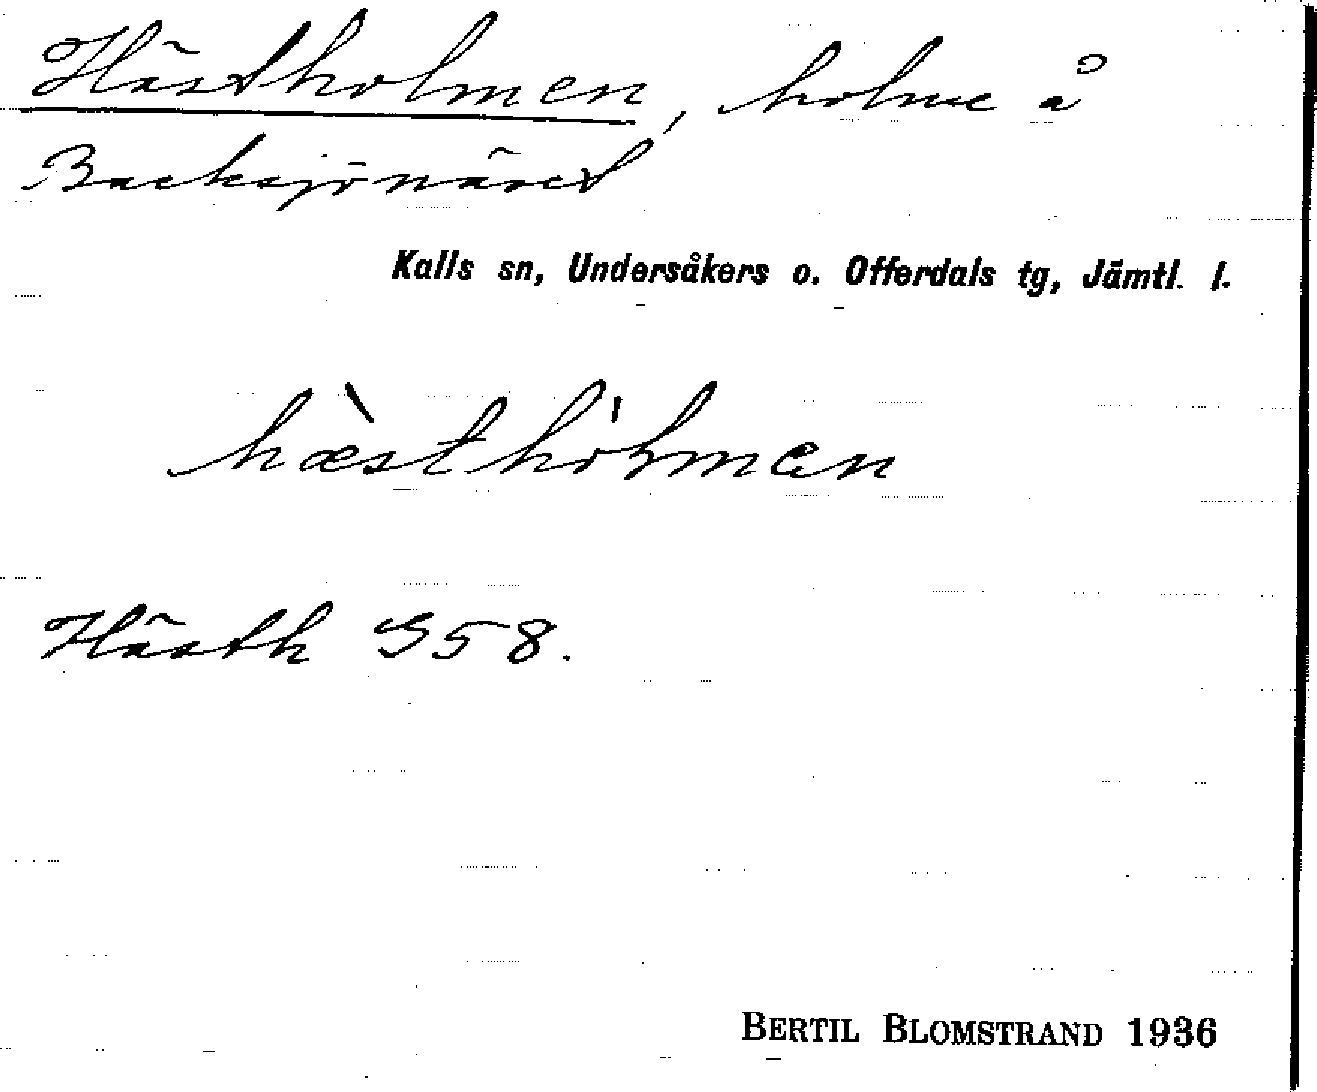 Hästholmen, holme å
Backsjönäset
Kalls sn, Undersåkers o. Offerdals tg, Jämtl. l.
hæ̀sthólmen
Hästh G58.
BERTIL BLOMSTRAND 1936